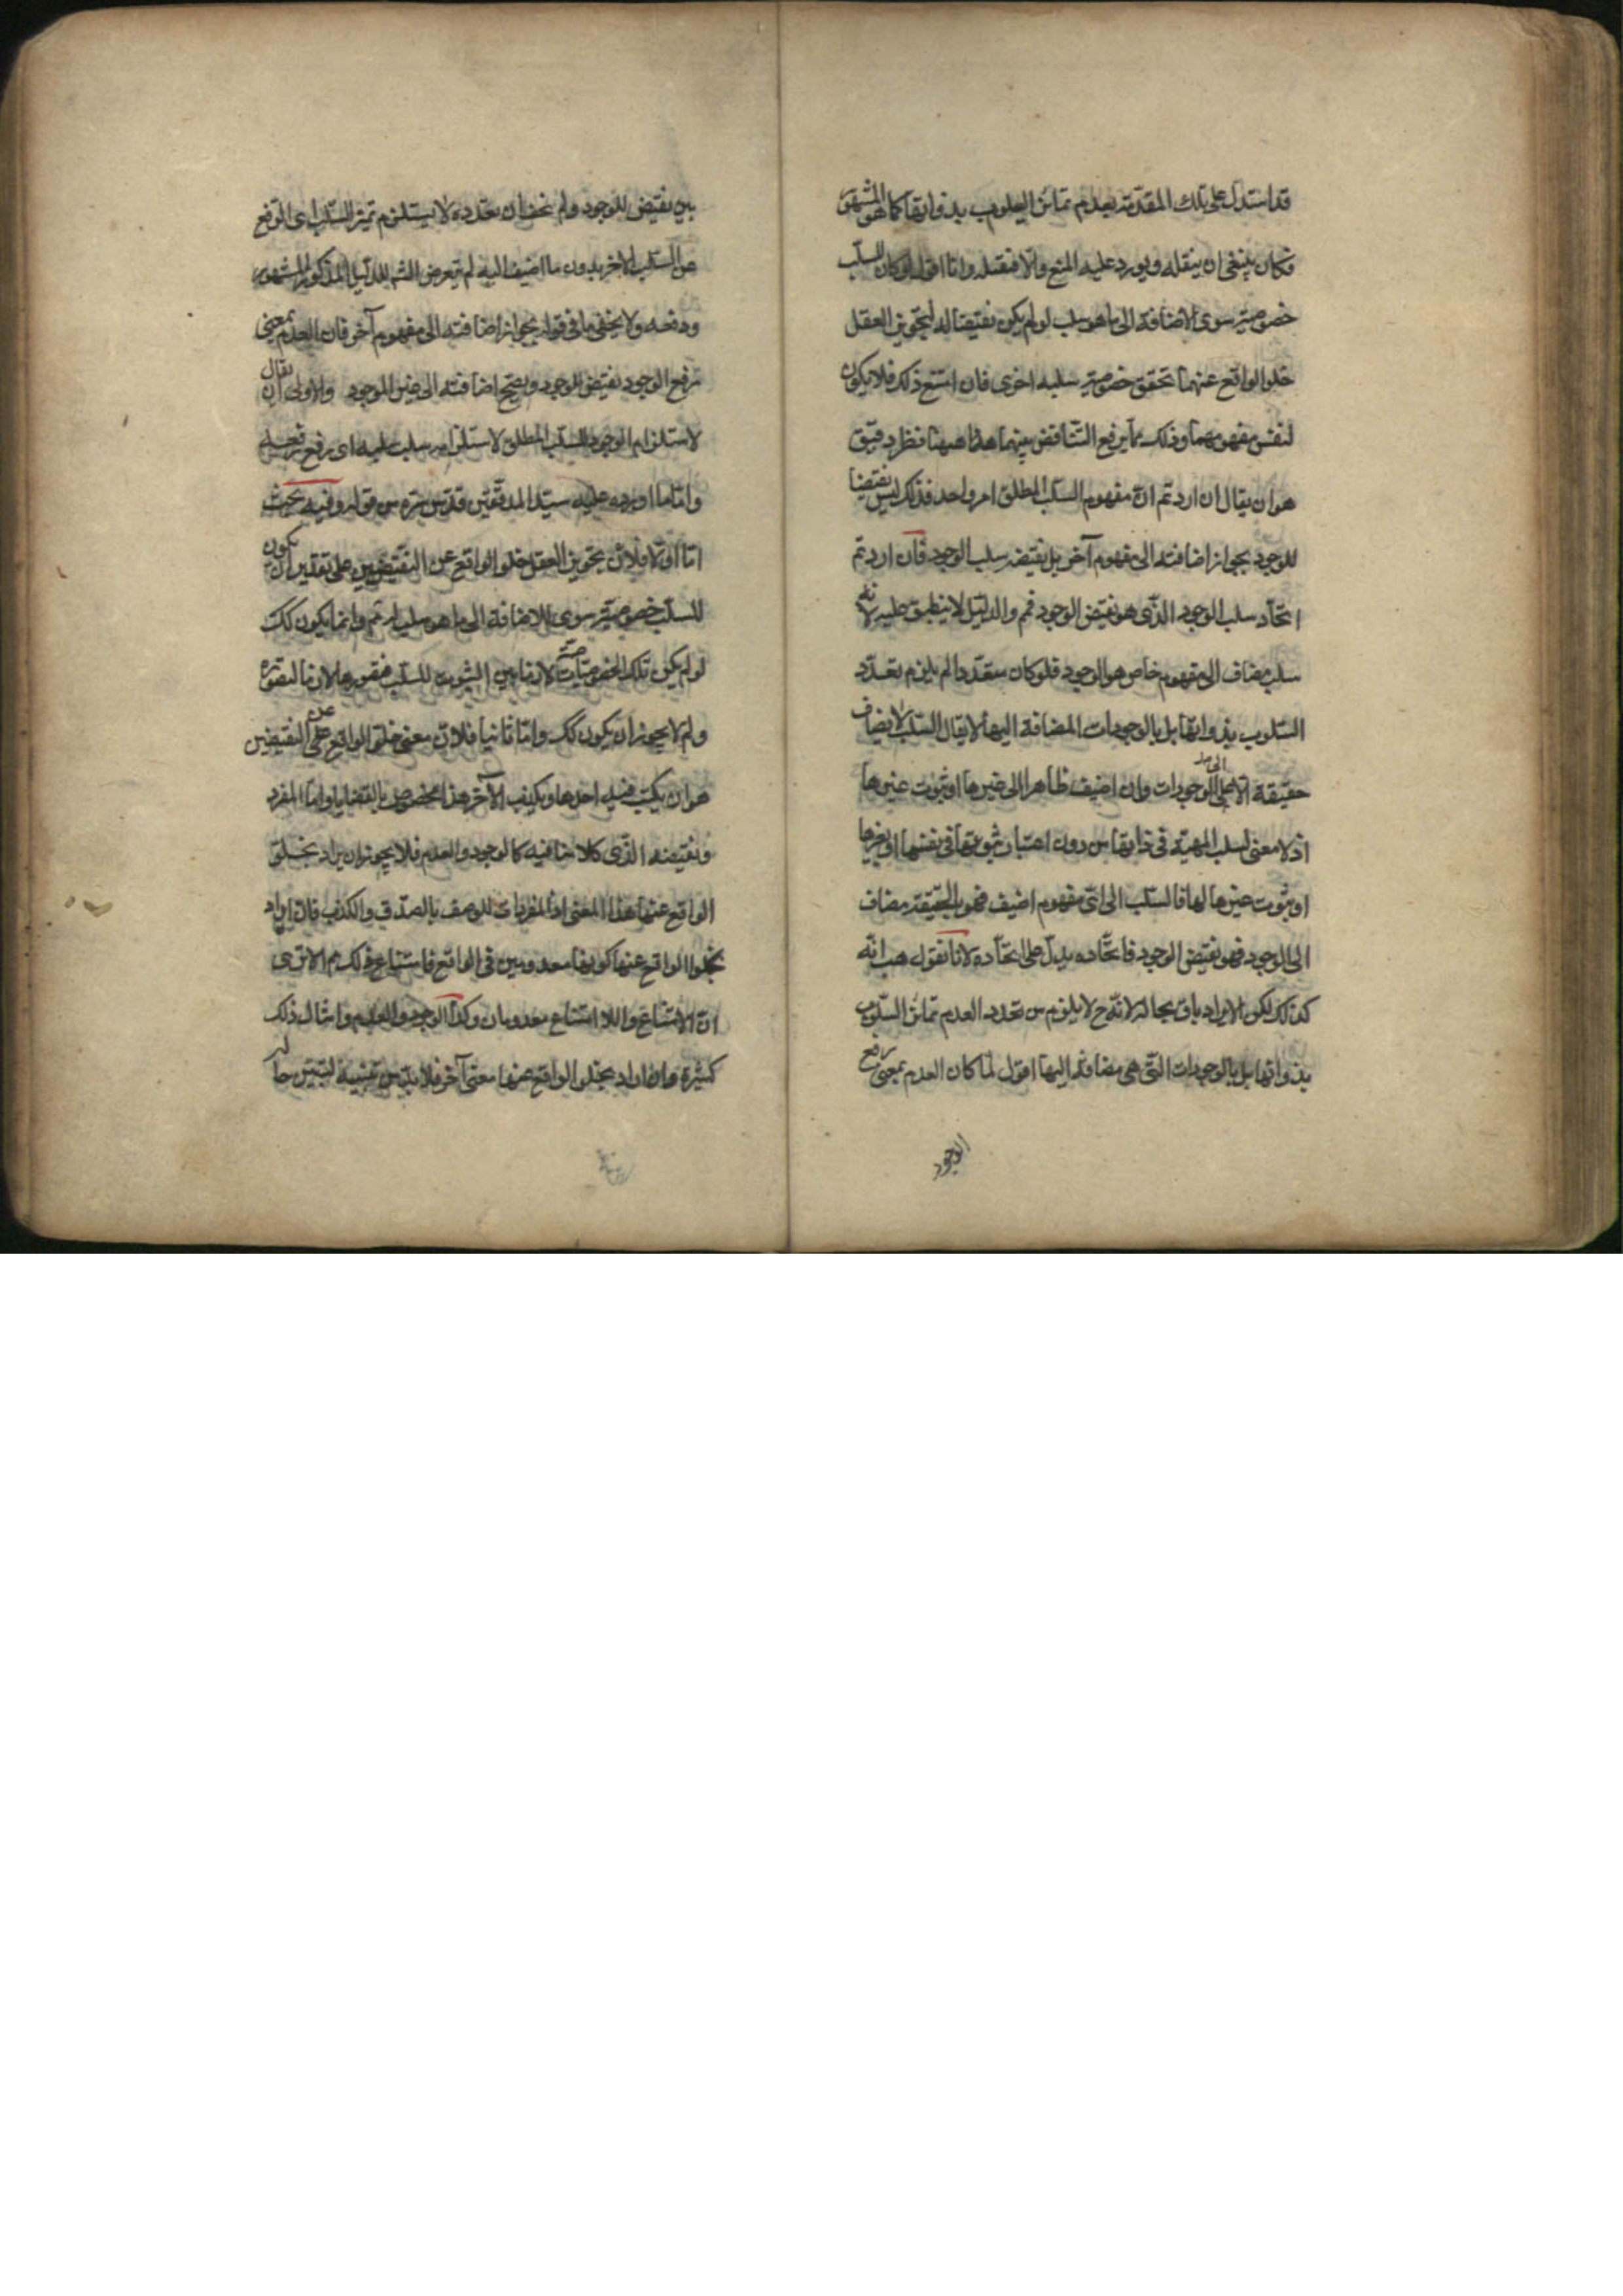 قد استدل على تلك المقدمة بعدم تمايز السلوب بذواتها كما هو المشهور
فكان ينبغي ان ينقله ويورد عليه المنع والا فنقله واما اقول لو كان للسلب
خصوصية سوى الاضافة الى ما هو سلب لو لم يكن نقيضا له لتجويز العقل
خلو الواقع عنهما بتحقق خصوصية سلبية اخرى فان امتنع ذلك فلا يكون
لنفس مفهومهما وذلك مما يرفع التناقض بينهما هذا ههنا نظر دقيق
هو ان يقال ان اردتم ان مفهوم السلب المطلق امر واحد فذلك ليس نقيضا
للوجود بجواز اضافته الى مفهوم آخر بل نقيضه سلب الوجود فان اردتم
اتحاد سلب الوجود الذي هو نقيض الوجود فم والدليل لا ينطبق عليه لانه
سلب مضاف الى مفهوم خاص هو الوجود فلو كان متعددا لم يلزم تعدد
السلوب بذواتها بل بالوجودات المضافة اليها لا يقال السلب لا يضاف
حقيقة الا الى الوجودات وان اضيف ظاهرا الى غيرها او ثبوت غيرها
اذ لا معنى لسلب المهية في ذاتها من دون اعتبار ثبوتها في نفسها او لغيرها
او ثبوت غيرها لها فالسلب الى اي مفهوم اضيف فهو بالحقيقة مضاف
الى الوجود فهو نقيض الوجود فاتحاده يدل على اتحاده لانا نقول هب انه
كذلك لكن الايراد باق بحاله لانه ح لا يلزم من تعدد العدم تمايز السلوب
بذواتها بل بالوجودات التي هي مضافة اليها اقول لما كان العدم بمعنى رفع
الوجود
بين نقيض للوجود ولم نحف ان تعدده لا يستلزم تميز السلب اى الرفع
عن السلب الاخر بدون ما اضيف اليه لم يتعرض الش للدليل المذكور المشهور
ودفعه ولا يخفى ما في قوله بجواز اضافته الى مفهوم آخر فان العدم بمعنى
رفع الوجود نقيض للوجود ويصح اضافته الى غير الوجود والاولى ان يقال
لاستلزام الوجود للسلب المطلق لاستلزامه سلب سلبه اى رفع رفعه
واما ما اورده عليه سيد المدققين قدس سره من قوله وفيه بحث
اما اولا فلان تجويز العقل خلو الواقع عن النقيضين على تقدير ان يكون
للسلب خصوصية سوى الاضافة الى ما هو سلب له ثم وانما يكون كك
لو لم يكن تلك الخصوصية لازما بين الثبوت للسلب فتصورهما لازما لتصوره
ولم لا يجوز ان يكون كك واما ثانيا فلان معنى خلو الواقع عن النقيضين
هو ان يكتب فيه احدهما ويكيف الآخر هذا مخصوص بالقضايا واما المفرد
ونقيضه الذي كلامنا فيه كالوجود والعدم فلا يجوز ان يراد بخلو
الواقع عنهما هذا المعنى اذ المفردات للوصف بالصدق والكذب فان اراد
بخلو الواقع عنهما كونهما معدومين في الواقع فامتناع ذلك م الا ترى
ان الامتناع واللا امتناع معدومان وكذا الوجود والعدم وامثال ذلك
كثيرة وان اراد بخلو الواقع عنهما معنى آخر فلا بد من تبيينه ليتبين حاله